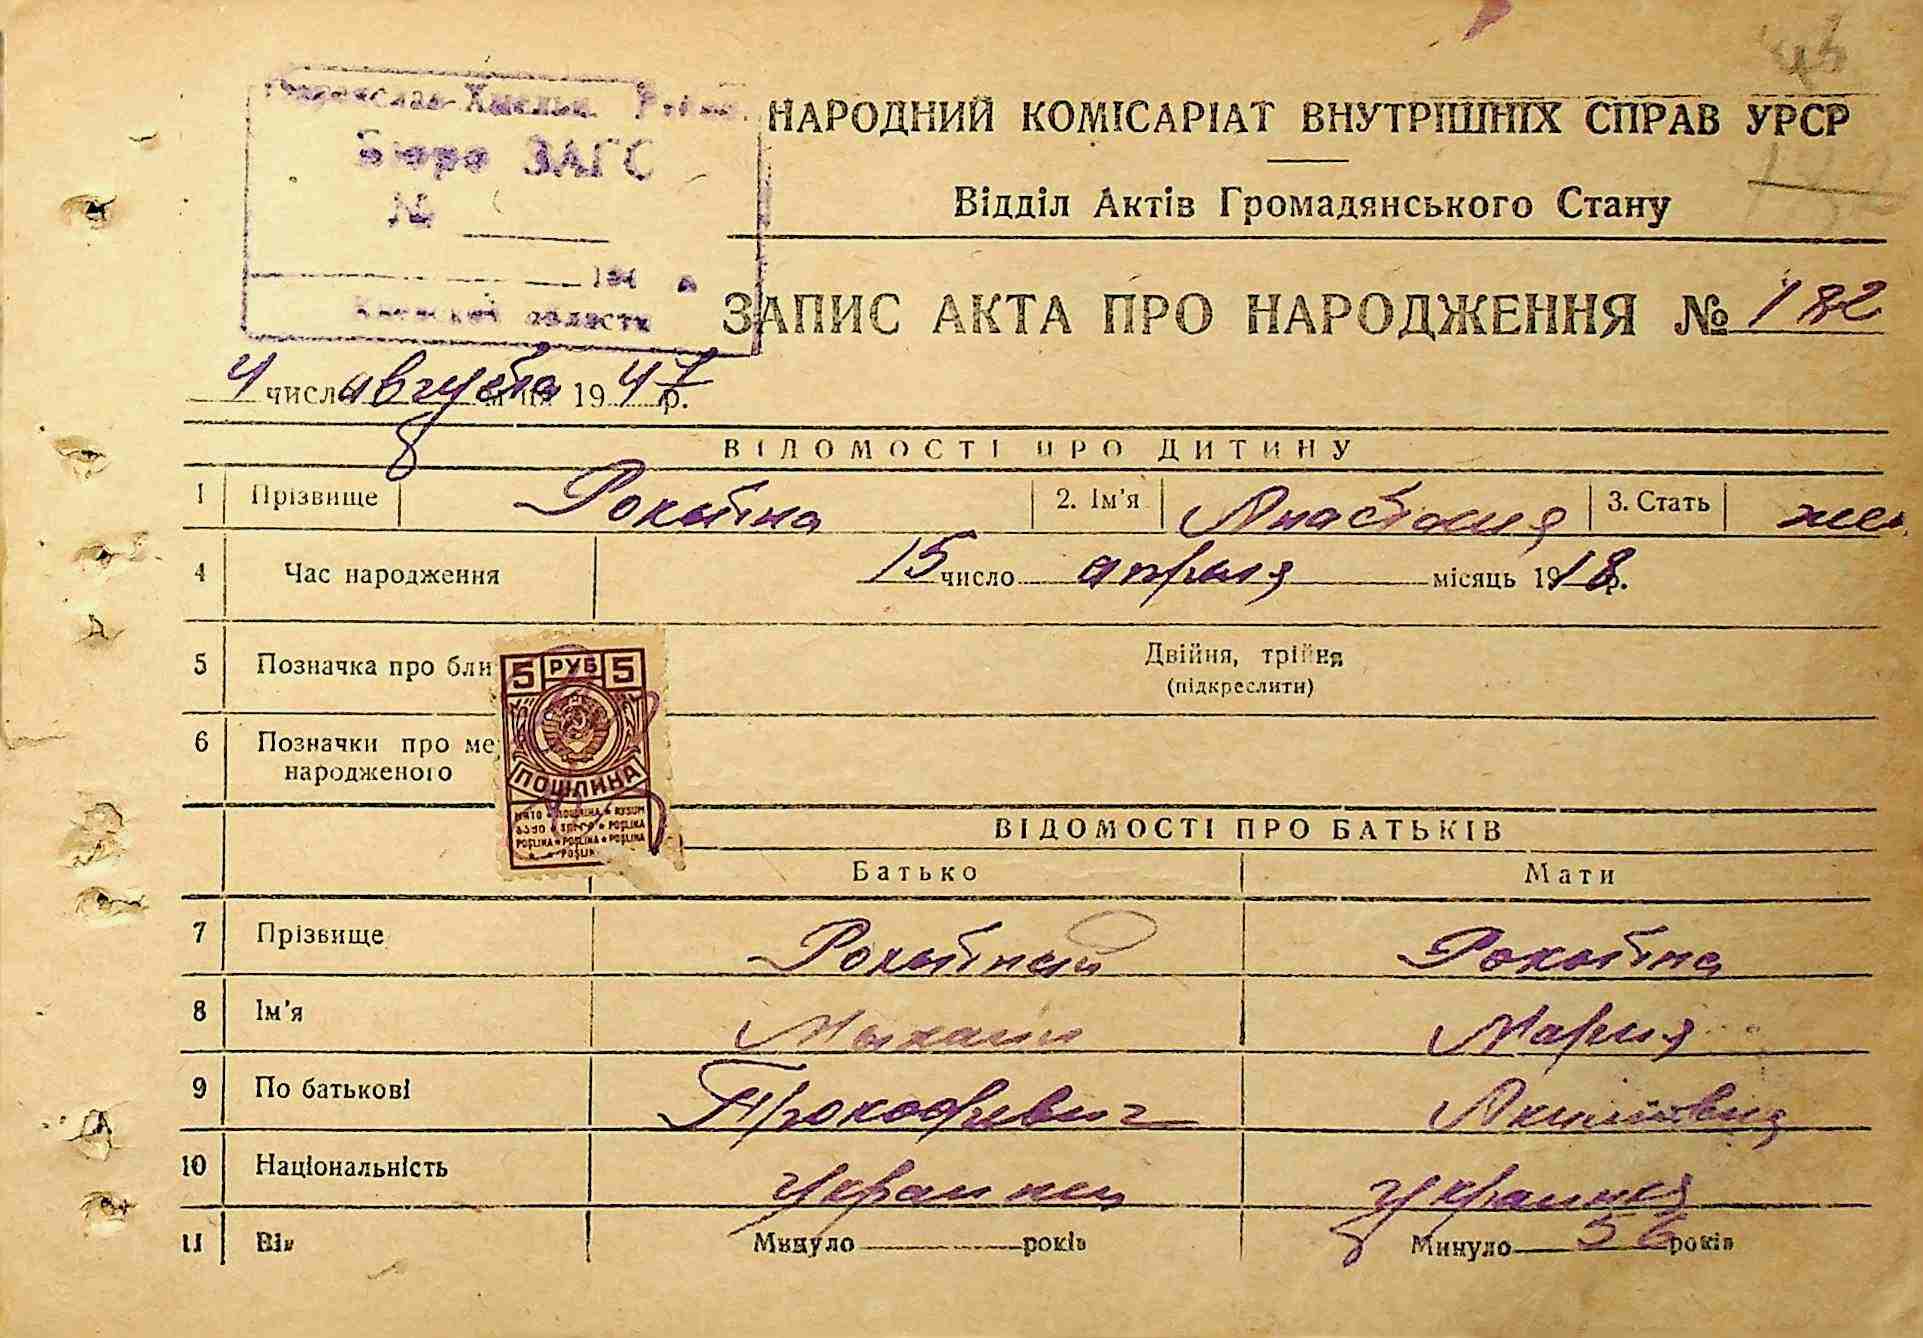 Бюро ЗАГС
№
194
области
НАРОДНИЙ КОМІСАРІАТ ВНУТРІШНІХ СПРАВ УРСР
Відділ Актів Громадянського Стану
ЗАПИС АКТА ПРО НАРОДЖЕННЯ № 182
4 числа августа м-ця 1947 р.
8
ВІДОМОСТІ ПРО ДИТИНУ
1 Прізвище Рокитна 2. Ім'я Анастасия 3. Стать жен
4 Час народження 15 число апреля місяць 1918 р.
5 Позначка про бли Двійня, трійня
(підкреслити)
6 Позначки про ме
народженого
5 РУБ 5
ПОШЛИНА
ВІДОМОСТІ ПРО БАТЬКІВ
Батько Мати
7 Прізвище Рокитный Рокитна
8 Ім'я Михаил Мария
9 По батькові Прокофьевич Акимовна
10 Національність украинец украинка
11 Вік Минуло років Минуло 56 років